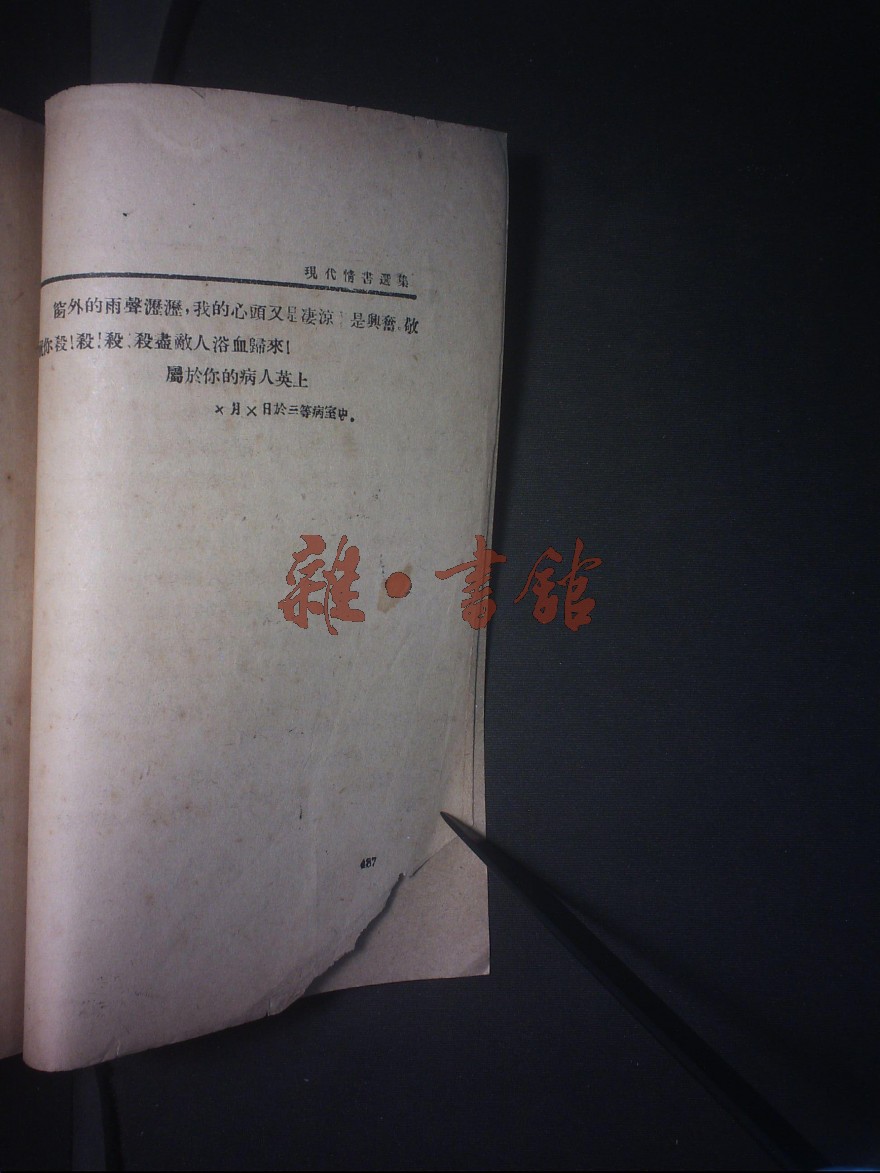 現代情書選集
窗外的雨聲瀝瀝，我的心頭又是凄涼 是興奮。敬
你殺！殺！殺 殺盡敵人浴血歸來！
屬於你的病人英上
×月×日於三等病室中。
雜·書館
487